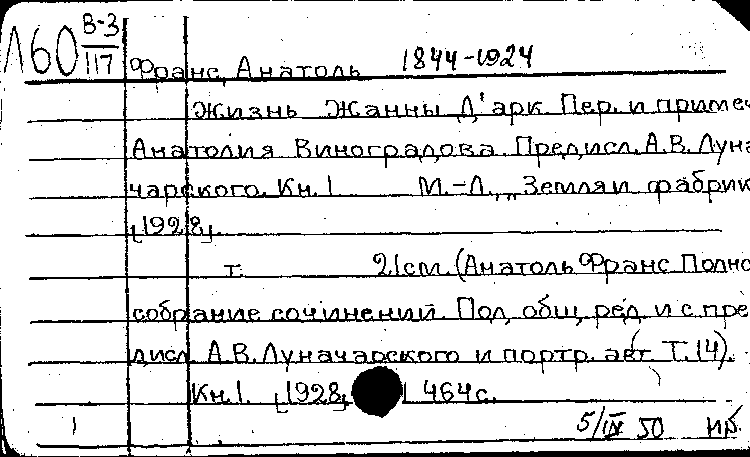 Л60 В-3/117
Франс, Анатоль 1844-1924
Жизнь Жанны Д'арк. Пер. и примеч
Анатолия Виноградова. Предисл. А.В. Луна
чарского. Кн. 1 М.-Л., „Земля и фабрик
[1928].
т. 21см. (Анатоль Франс. Полно
собрание сочинений. Под общ. ред. и с пре
дисл. А.В. Луначарского и портр. авт. Т. 14).
Кн. 1. [1928] 464 с.
1 5/IX 50 нб.